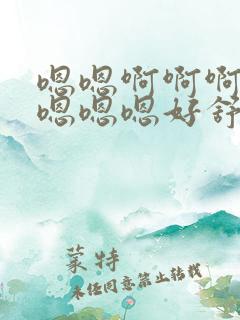 嗯嗯啊啊啊
嗯嗯嗯好舒
蒙特
未经同意禁止转载